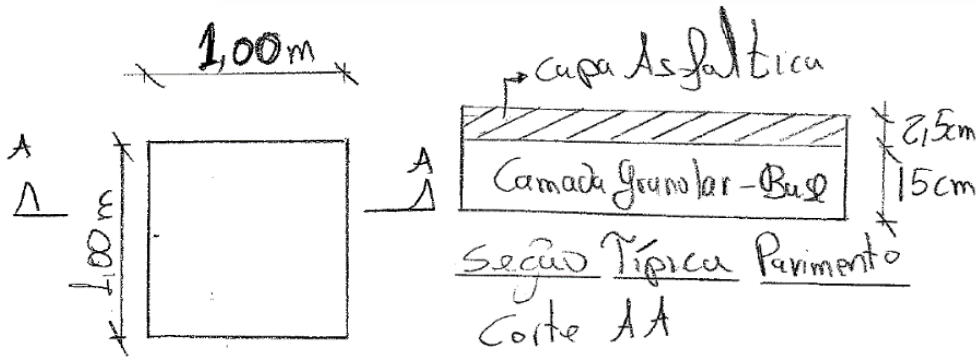 1,00m
capa Asfaltica
2,5cm
A
A
Camada Granular-Base
15cm
1,00m
Seção Típica Pavimento
Corte AA